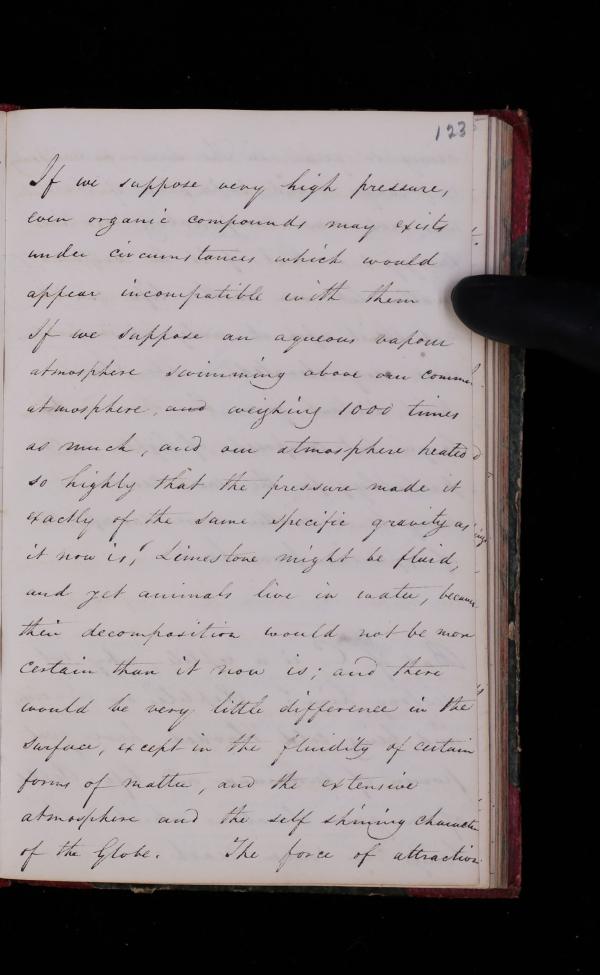 123
If we suppose very high pressure,
even organic compounds may exists
under circumstances which would
appear incompatible with them
If we suppose an aqueous vapour
atmosphere swimming above our common
atmosphere, and weighing 1000 times
as much, and our atmosphere heated
so highly that the pressure made it
exactly of the same specific gravity as
it now is, Limestone might be fluid,
and yet animals live in water, because
their decomposition would not be more
certain than it now is; and there
would be very little difference in the
surface, except in the fluidity of certain
forms of matter, and the extensive
atmosphere and the self shining character
of the Globe. The force of attraction